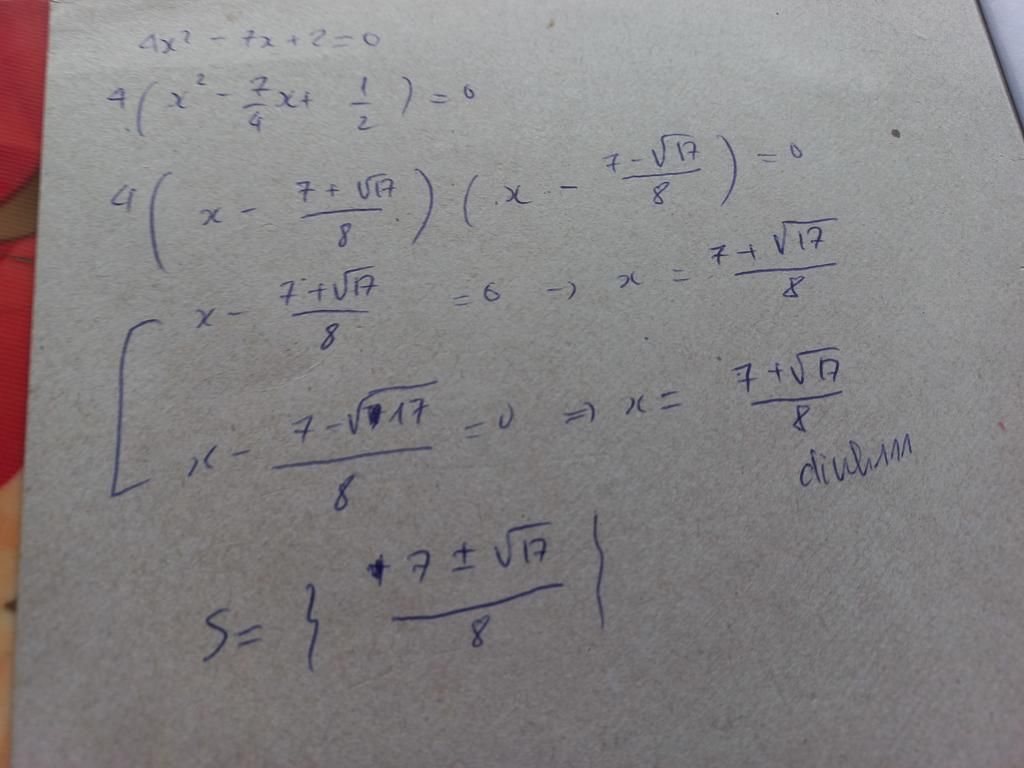 4x² - 7x + 2 = 0
4(x² - 7/4 x + 1/2) = 0
4(x - (7 + √17)/8)(x - (7 - √17)/8) = 0
x - (7 + √17)/8 = 0 → x = (7 + √17)/8
x - (7 - √17)/8 = 0 ⇒ x = (7 + √17)/8
S = { (7 ± √17)/8 }